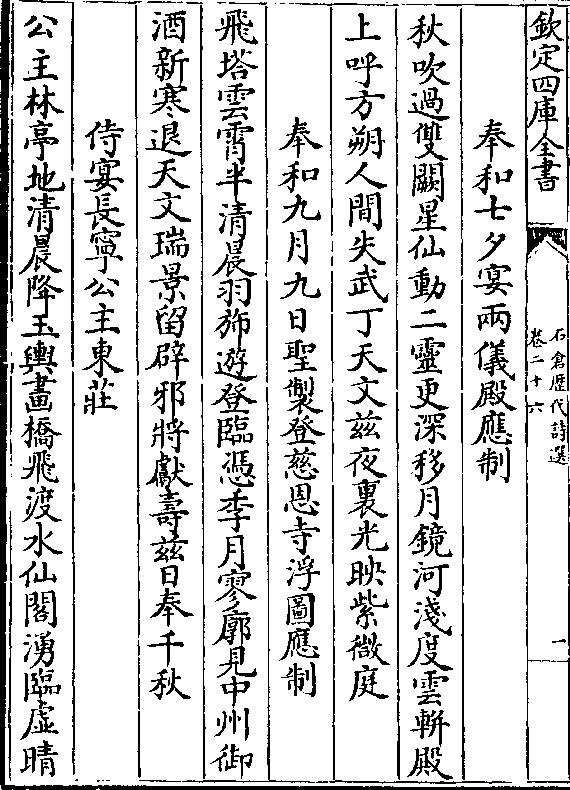 欽定四庫全書
石倉歴代詩選
卷二十六
一
奉和七夕宴兩儀殿應制
秋吹過雙闕星仙動二靈更深移月鏡河淺度雲輧殿
上呼方朔人間失武丁天文兹夜裏光映紫微庭
奉和九月九日聖製登慈恩寺浮圖應制
飛塔雲霄半清晨羽斾遊登臨憑季月寥廓見中州御
酒新寒退天文瑞景留辟邪將獻壽兹日奉千秋
侍宴長寧公主東莊
公主林亭地清晨降玉輿畫橋飛渡水仙閣湧臨虚晴